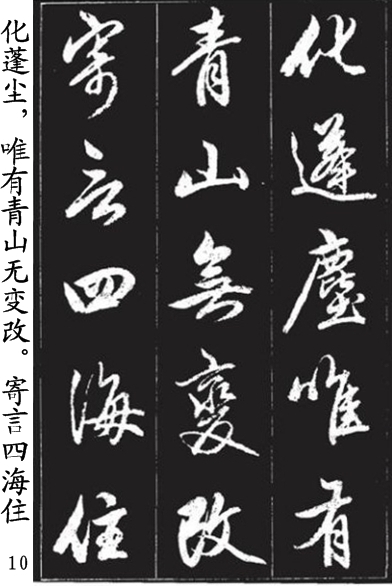 化蓬塵唯有
青山無變改
寄言四海住
化蓬尘，唯有青山无变改。寄言四海住
10